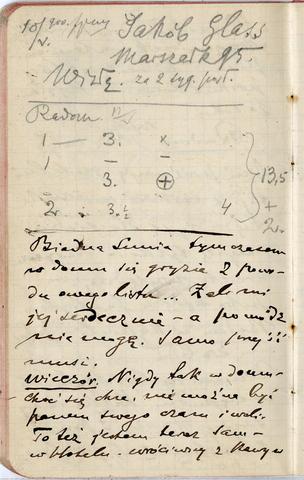 Jakób Glass
Marszałk 95.
Wizłę. za 2 tyg.
Radom
1 — 3. ×
1 – –
3. ⊕ 13,5
2 3.½ 4 +
2.
Biedna Lunia tymczasem
w domu się gryzie z powo-
du owego listu... Żal mi
jej serdecznie – a pomódz
nie mogę. Samo przejść
musi.
Wieczór. Nigdy tak w domu –
choć się chce, nie można być
panem swego czasu i woli.
To też jestem teraz sam –
w hotelu – wróciwszy z